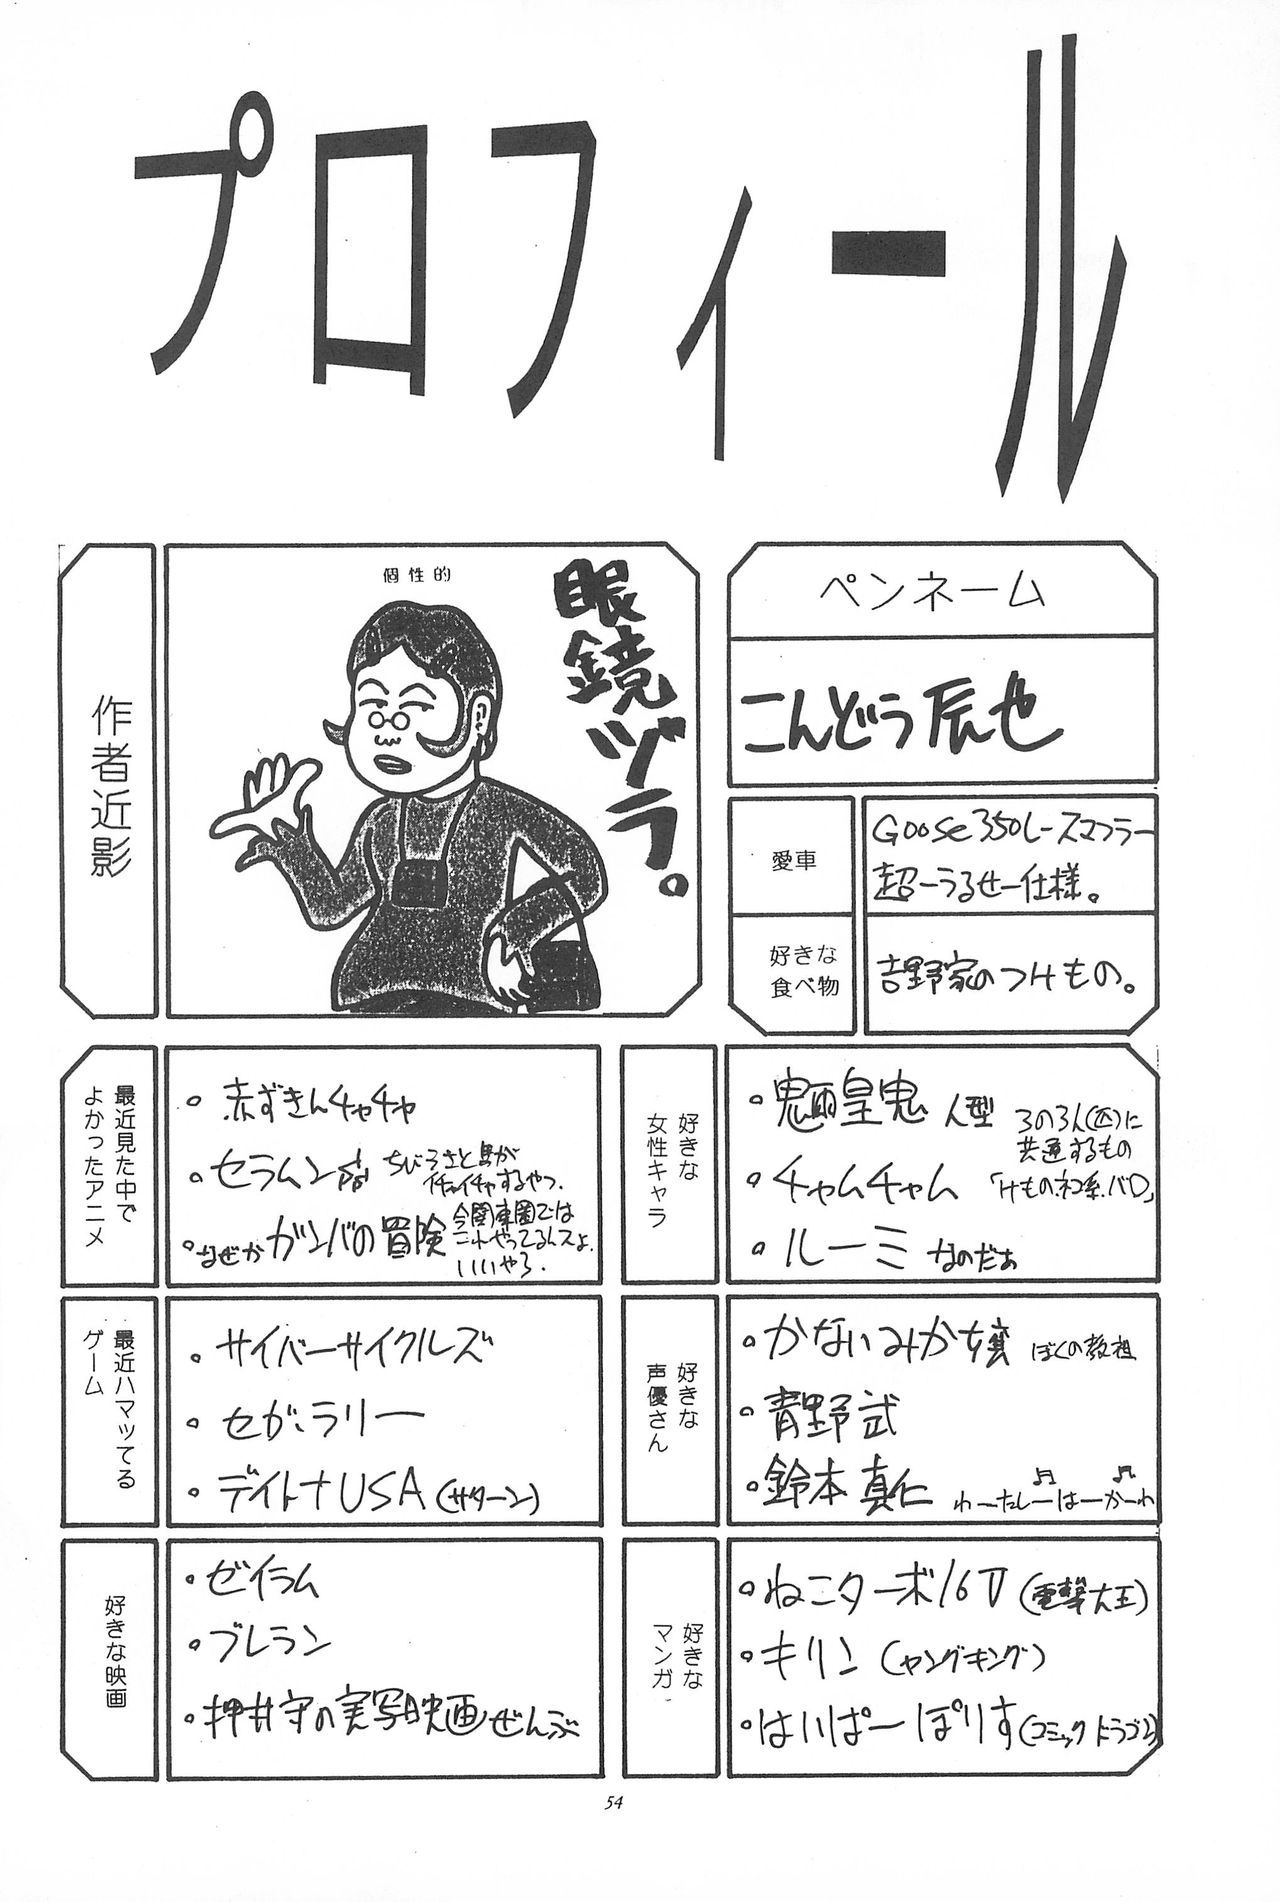 プロフィール
作者近影
個性的
眼鏡ヅラ。
ペンネーム
こんどう辰也
愛車
Goose350レースマフラー
超ーうるせー仕様。
好きな
食べ物
吉野家のつけもの。
最近見た中で
よかったアニメ
・赤ずきんチャチャ
・セラムン
ちびうさと馬が
イチャイチャするやつ
・なぜかガンバの冒険
今関東圏では
これやってるんスよ。
いいやろ。
好きな
女性キャラ
・魎皇鬼 人型
・チャムチャム
・ルーミィ なのだぁ
この3人(匹)に
共通するもの
「けもの・ネコ系・バロ」
最近ハマッてる
ゲーム
・サイバーサイクルズ
・セガ・ラリー
・デイトナUSA(サターン)
好きな
声優さん
・かないみか嬢 ぼくの教祖
・青野武
・鈴木真仁 わーたしーはーかーわ
好きな映画
・ゼイラム
・ブレラン
・押井守の実写映画ぜんぶ
好きな
マンガ
・ねこターボ16V(電撃大王)
・キリン(ヤングキング)
・はいぱーぽりす(コミックドラゴン)
54